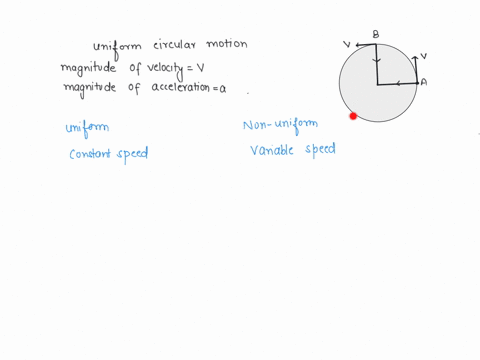 uniform circular motion
magnitude of velocity = V
magnitude of acceleration = a
B
V
V
A
uniform
Non-uniform
Constant speed
Variable speed